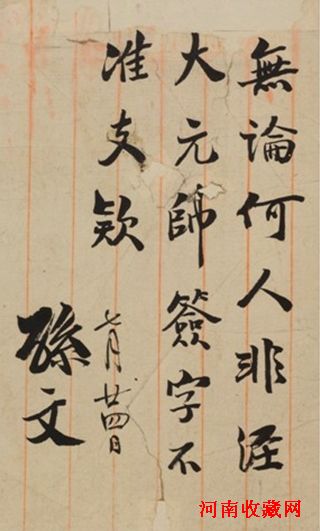 無論何人非經
大元帥簽字不
准支欵
七月廿四日
孫文
河南收藏网